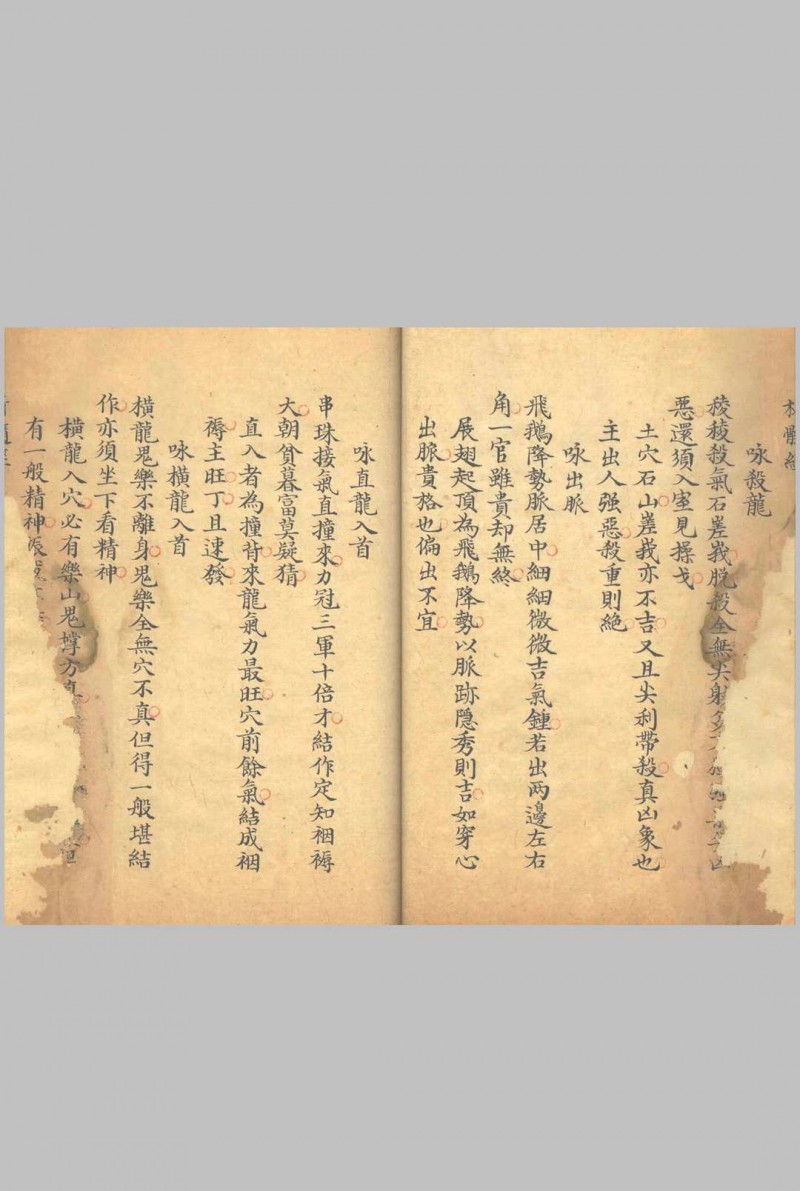 咏殺龍
稜稜殺氣石嵳峩脫殺全無尖射多
惡還須入室見操戈
土穴石山嵳峩亦不吉又且尖利帶殺真凶象也
主出人强惡殺重則絕
咏出脉
飛鵝降勢脈居中細細微微吉氣鍾若出两邊左右
角一官雖貴却無終
展翅起頂為飛鵝降勢以脈跡隱秀則吉如穿心
出脈貴格也偏出不宜
咏直龍入首
串珠接氣直撞來力冠三軍十倍才結作定知裀褥
大朝貧暮富莫疑猜
直入者為撞背來龍氣力最旺穴前餘氣結成裀
褥主旺丁且速發
咏橫龍入首
橫龍鬼樂不離身鬼樂全無穴不真但得一般堪結
作亦須坐下看精神
橫龍入穴必有樂山鬼撑方真
有一般精神